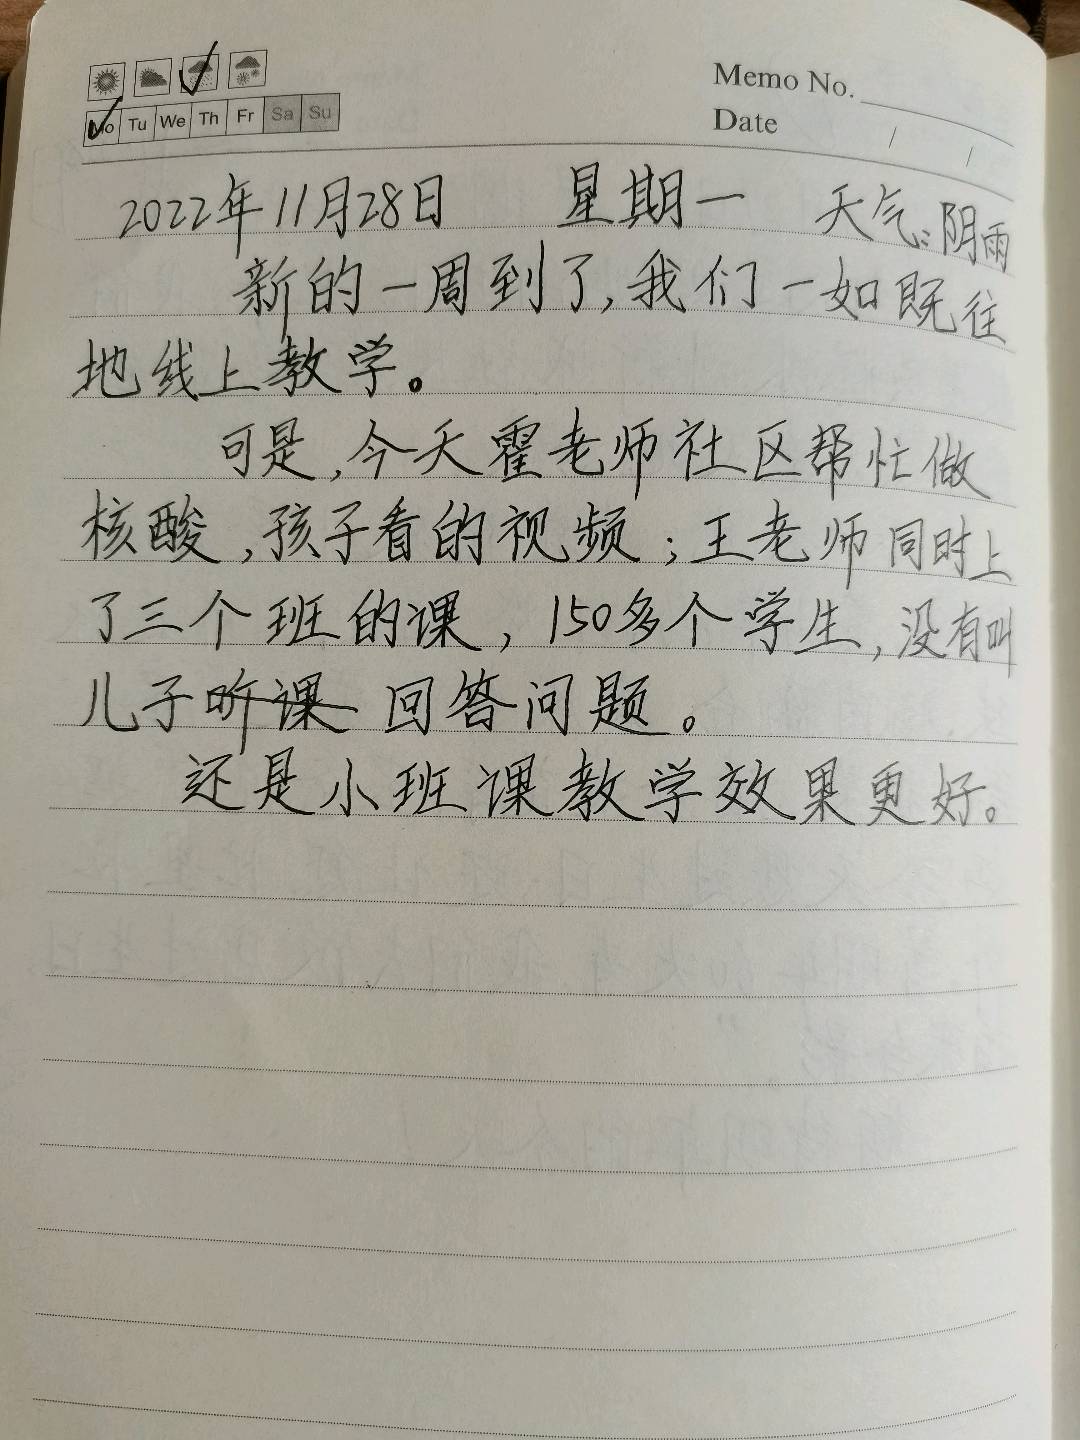 Memo No.
Mo Tu We Th Fr Sa Su
Date / /
2022年11月28日 星期一 天气:阴雨
新的一周到了,我们一如既往
地线上教学。
可是,今天霍老师社区帮忙做
核酸,孩子看的视频;王老师同时上
了三个班的课,150多个学生,没有叫
儿子听课 回答问题。
还是小班课教学效果更好。